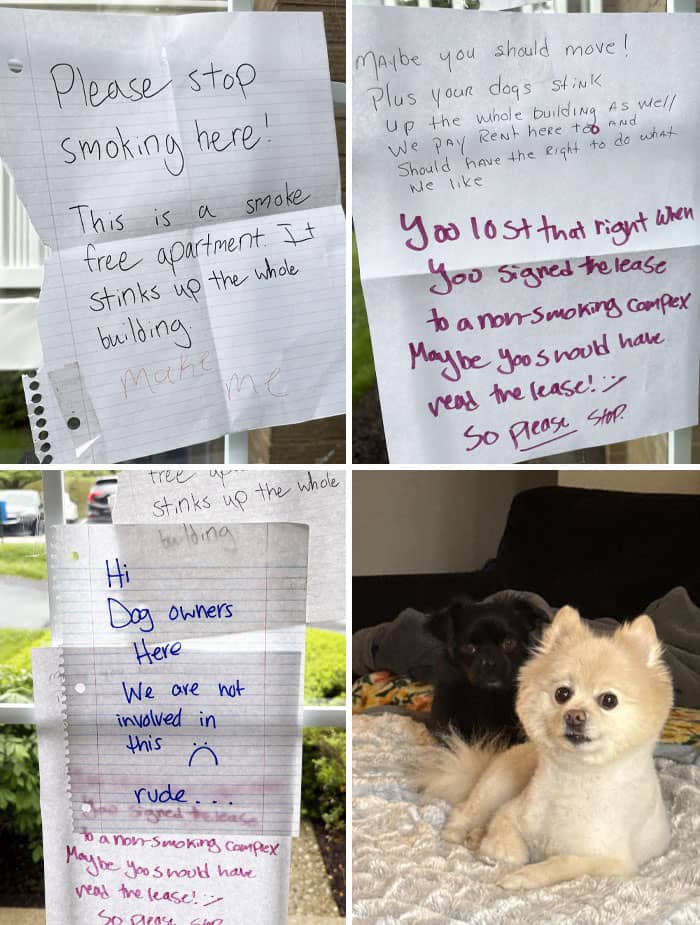 Please stop
smoking here!
This is a smoke
free apartment. It
stinks up the whole
building.
Make me
Maybe you should move!
Plus your dogs stink
up the whole building as well
We pay Rent here too and
Should have the Right to do what
we like
You lost that right when
You signed the lease
to a non-smoking complex
Maybe you should have
read the lease! :)
So please stop.
free
stinks up the whole
building
Hi
Dog owners
Here
We are not
involved in
this :(
rude...
You signed the lease
to a non-smoking complex
Maybe you should have
read the lease! :)
So please stop